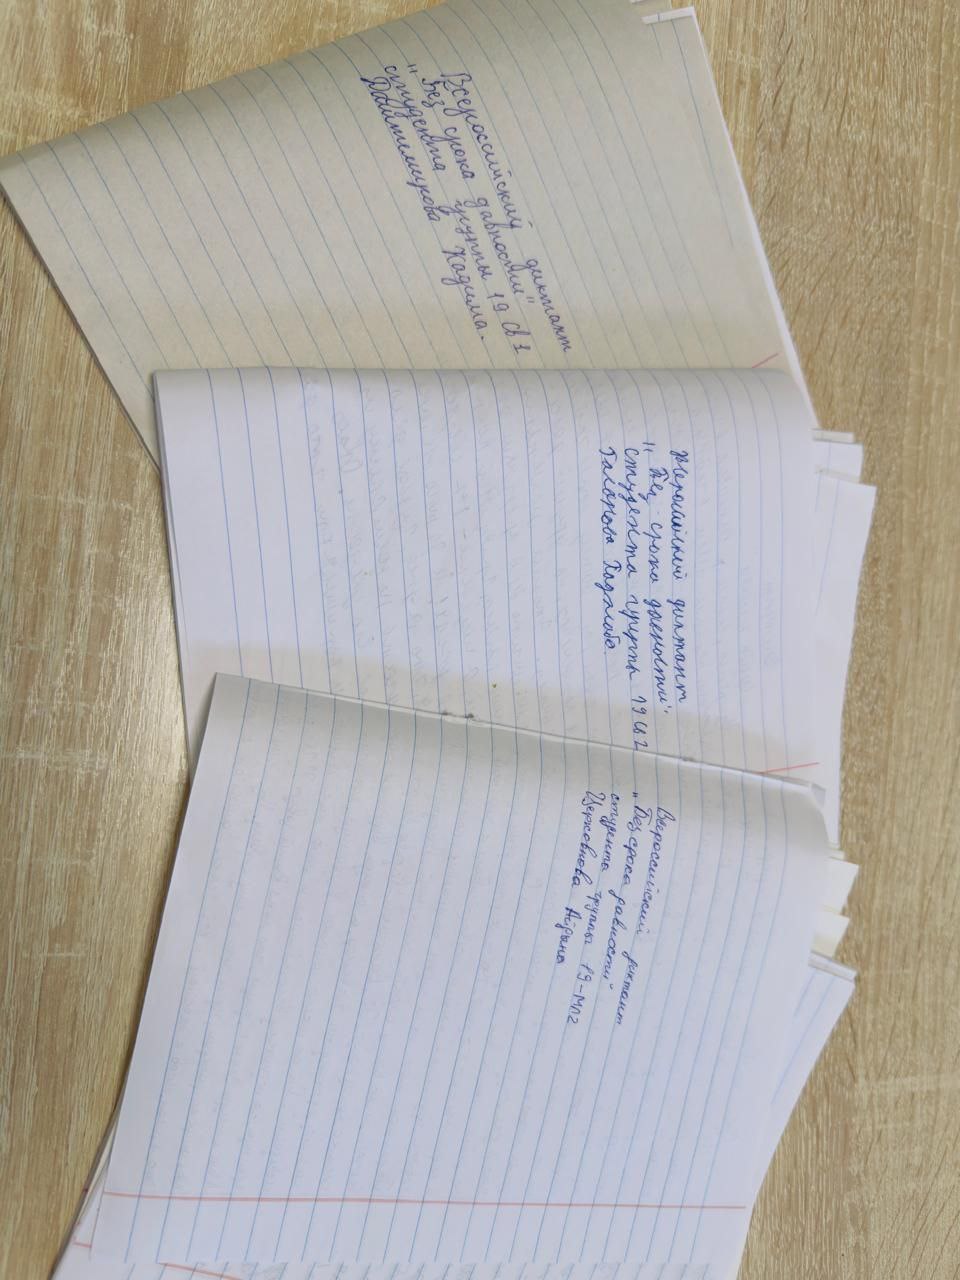 Всероссийский диктант
"Без срока давности"
студента группы 19 св 1
Даитемирова Кадима.
Всероссийский диктант
"Без срока давности".
студента группы 19 св 2
Хаджалаба
Всероссийский диктант
"Без срока давности"
студента группы 19-МЛ2
Айдына